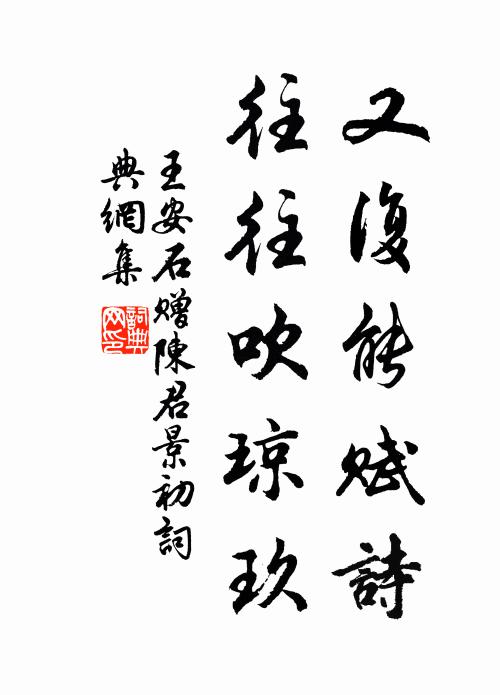 又復能賦詩
往往吹瓊玖
王安石贈陳君景初詞
典網集
詞典
网印